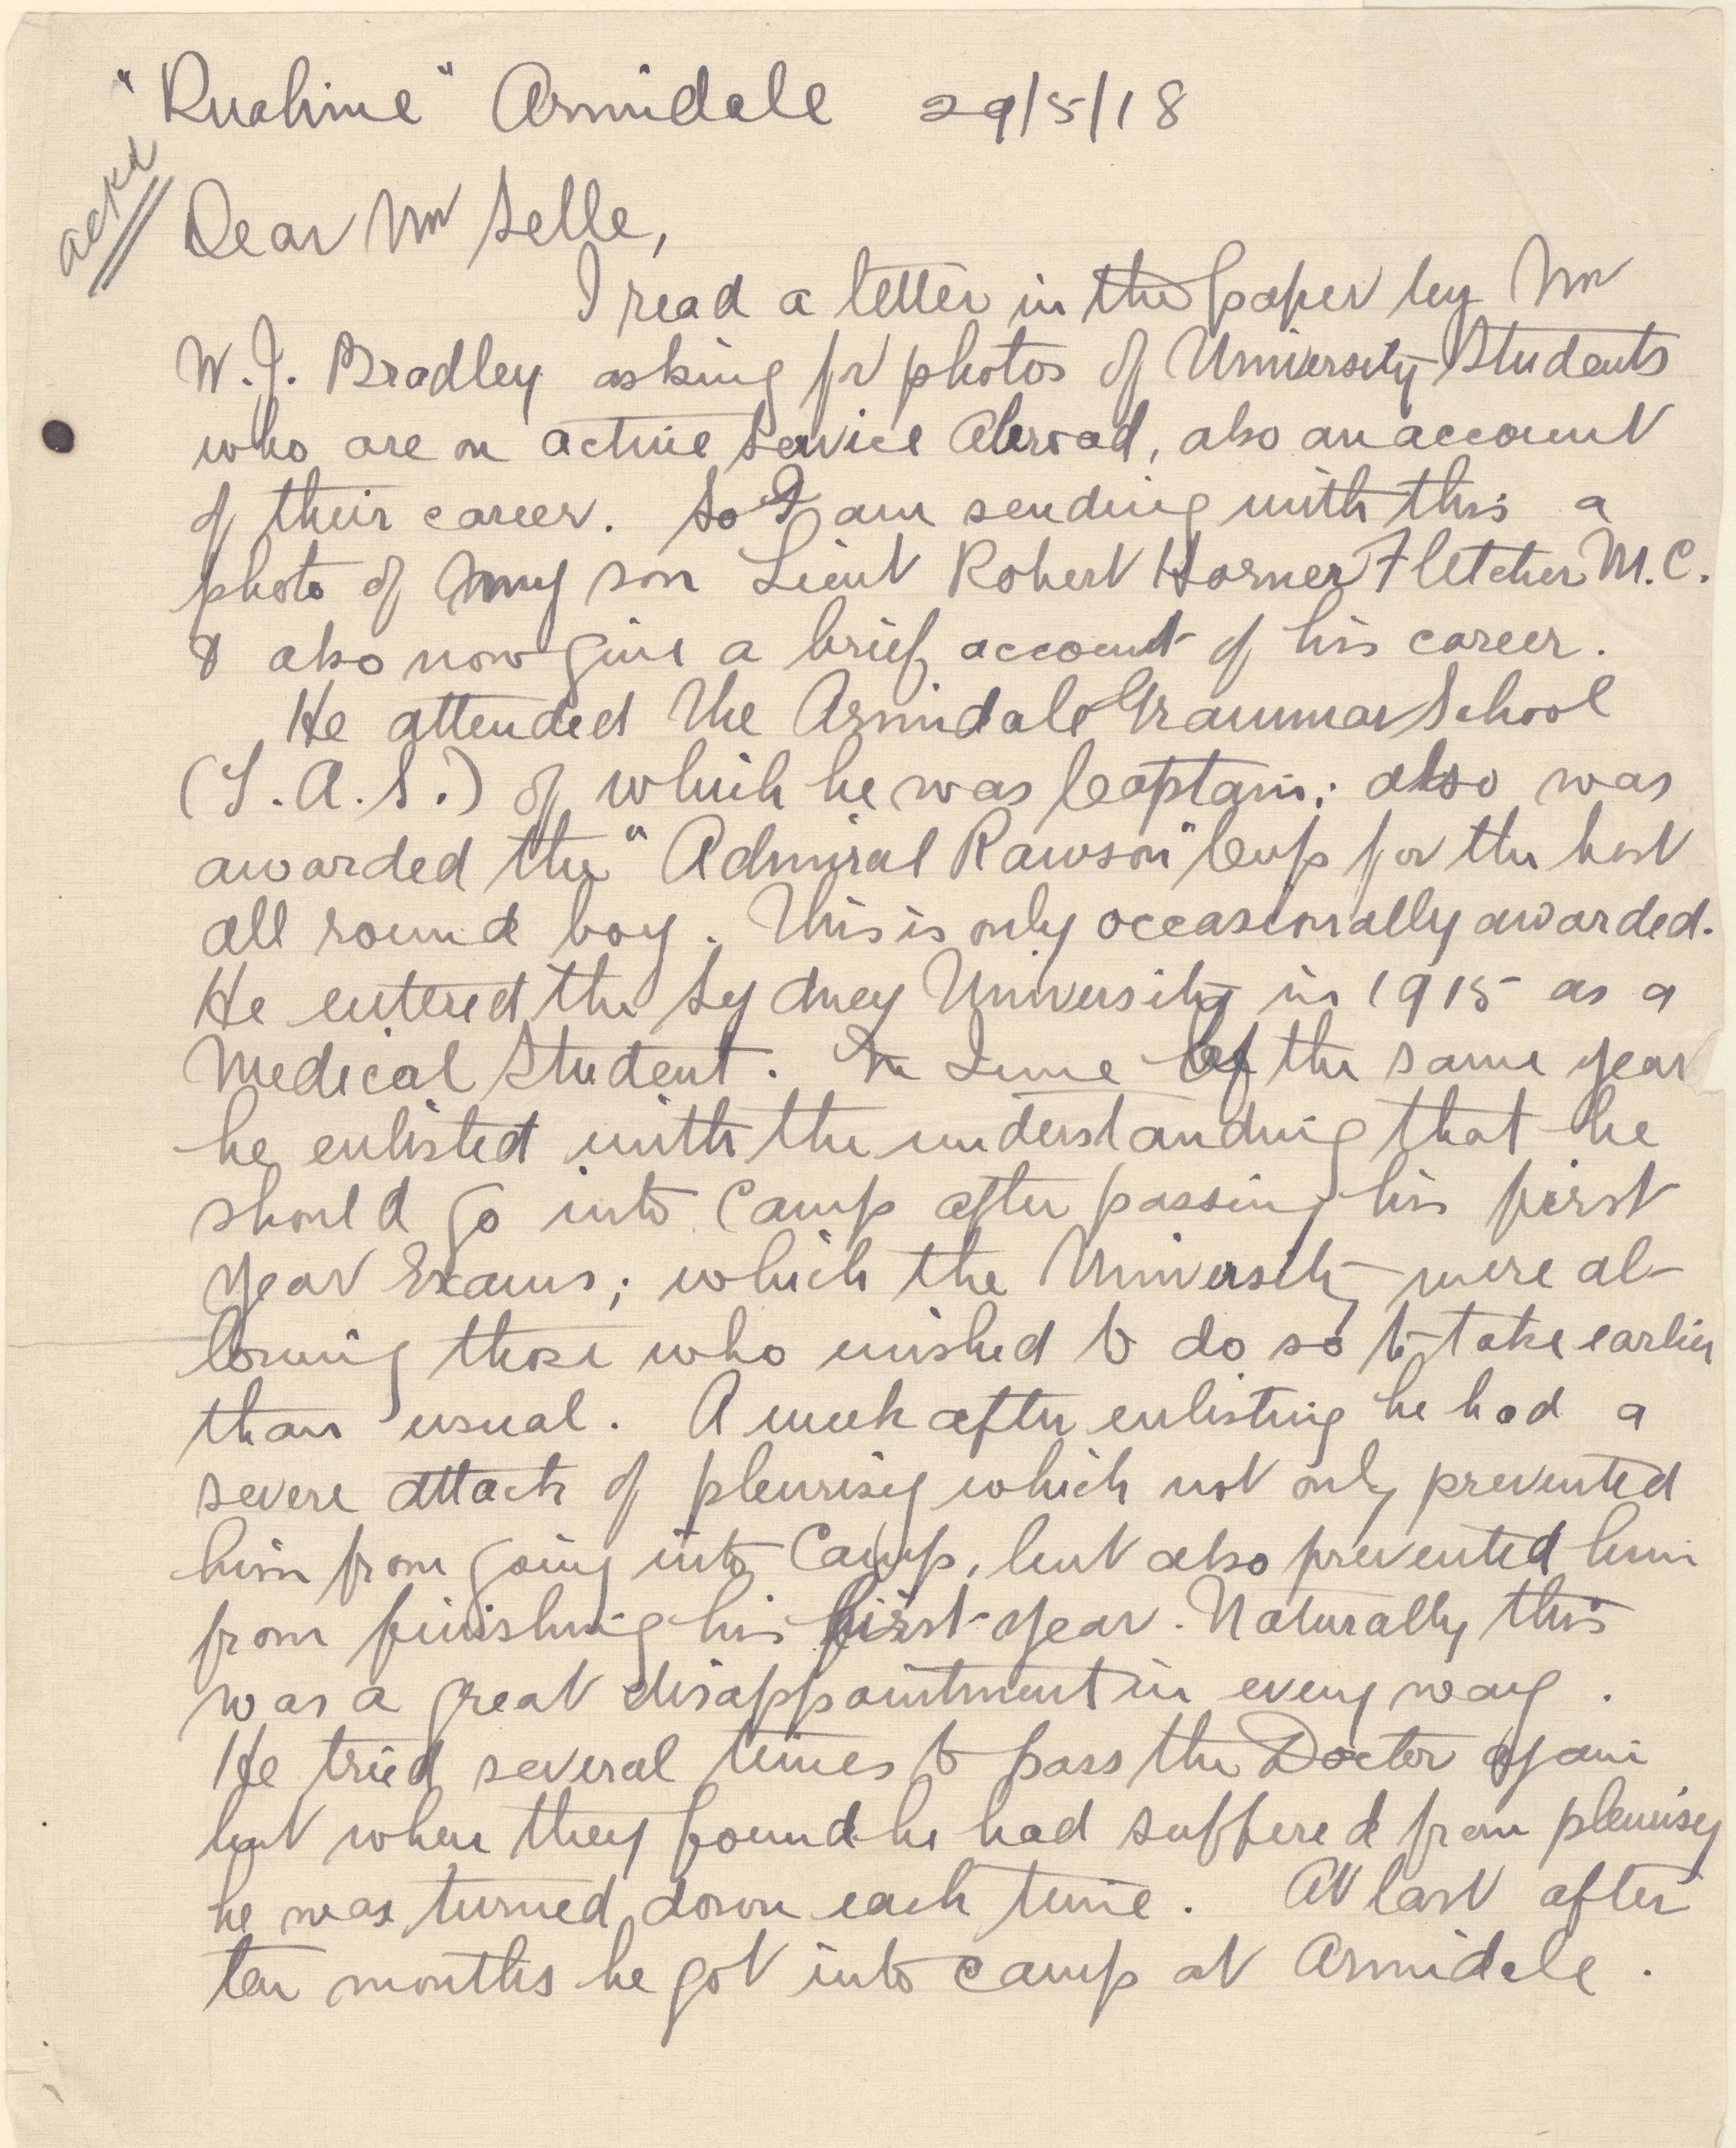 "Ruahine" Armidale 29/5/18
ackd
Dear Mr Selle,
I read a letter in the paper by Mr
W. J. Bradley asking for photos of University Students
who are on active Service Abroad, also an account
of their career. So I am sending with this a
photo of my son Lieut Robert Horner Fletcher M.C.
& also now give a brief account of his career.
He attended The Armidale Grammar School
(T.A.S.) of which he was Captain; also was
awarded the "Admiral Rawson" Cup for the best
all round boy. This is only occasionally awarded.
He entered the Sydney University in 1915 as a
Medical Student. In June of the same year
he enlisted with the understanding that he
should go into Camp after passing his first
year Exams; which the University were al-
lowing those who wished to do so to take earlier
than usual. A week after enlisting he had a
severe attack of pleurisy which not only prevented
him from going into Camp, but also prevented him
from finishing his first year. Naturally this
was a great disappointment in every way.
He tried several times to pass the Doctor again
but when they found he had suffered from pleurisy
he was turned down each time. At last after
ten months he got into camp at Armidale.